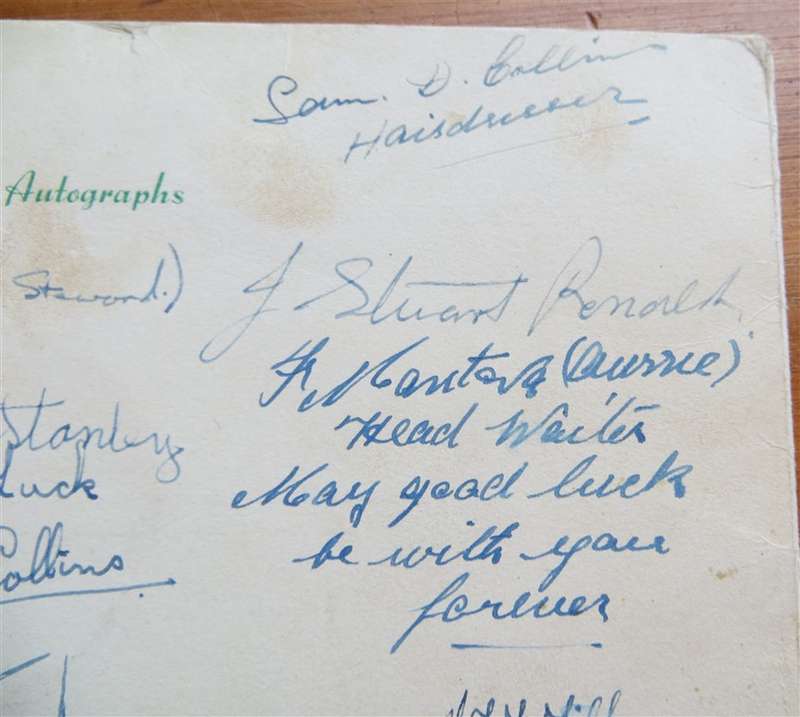 Sam. D. Collins
Hairdresser
Autographs
Steward.)
J Stuart Ronald
Head Waiter
Stanley
Luck
May good luck
be with you
Collins
forever